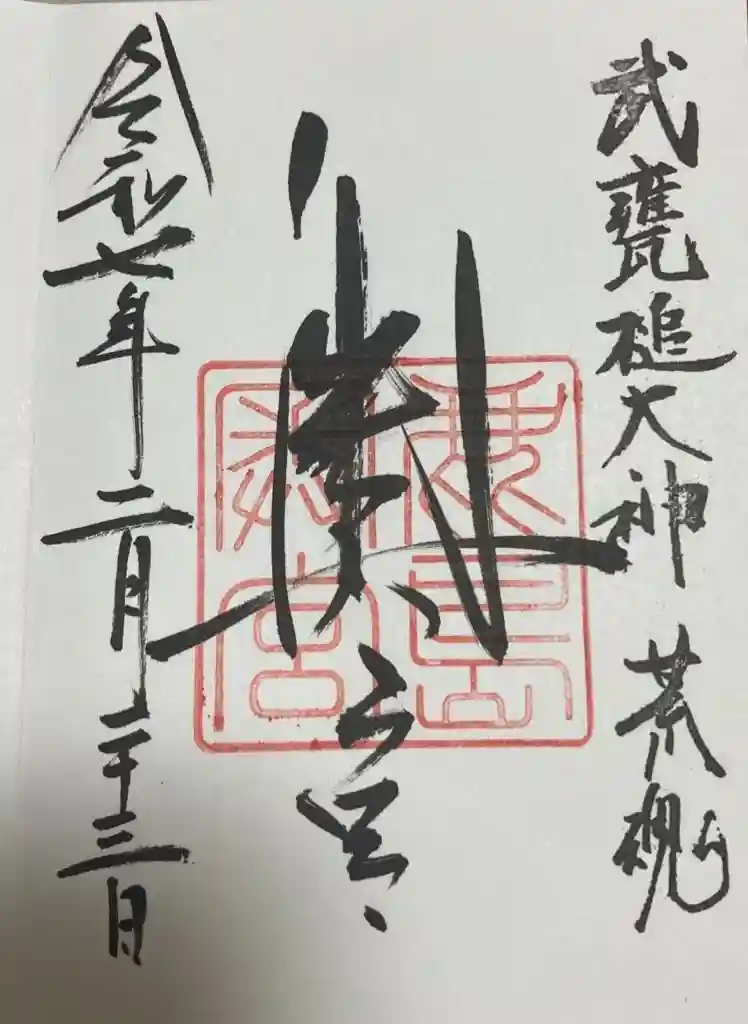 武甕槌大神 荒魂
奥宮
鹿島
奥宮
令和七年二月二十三日